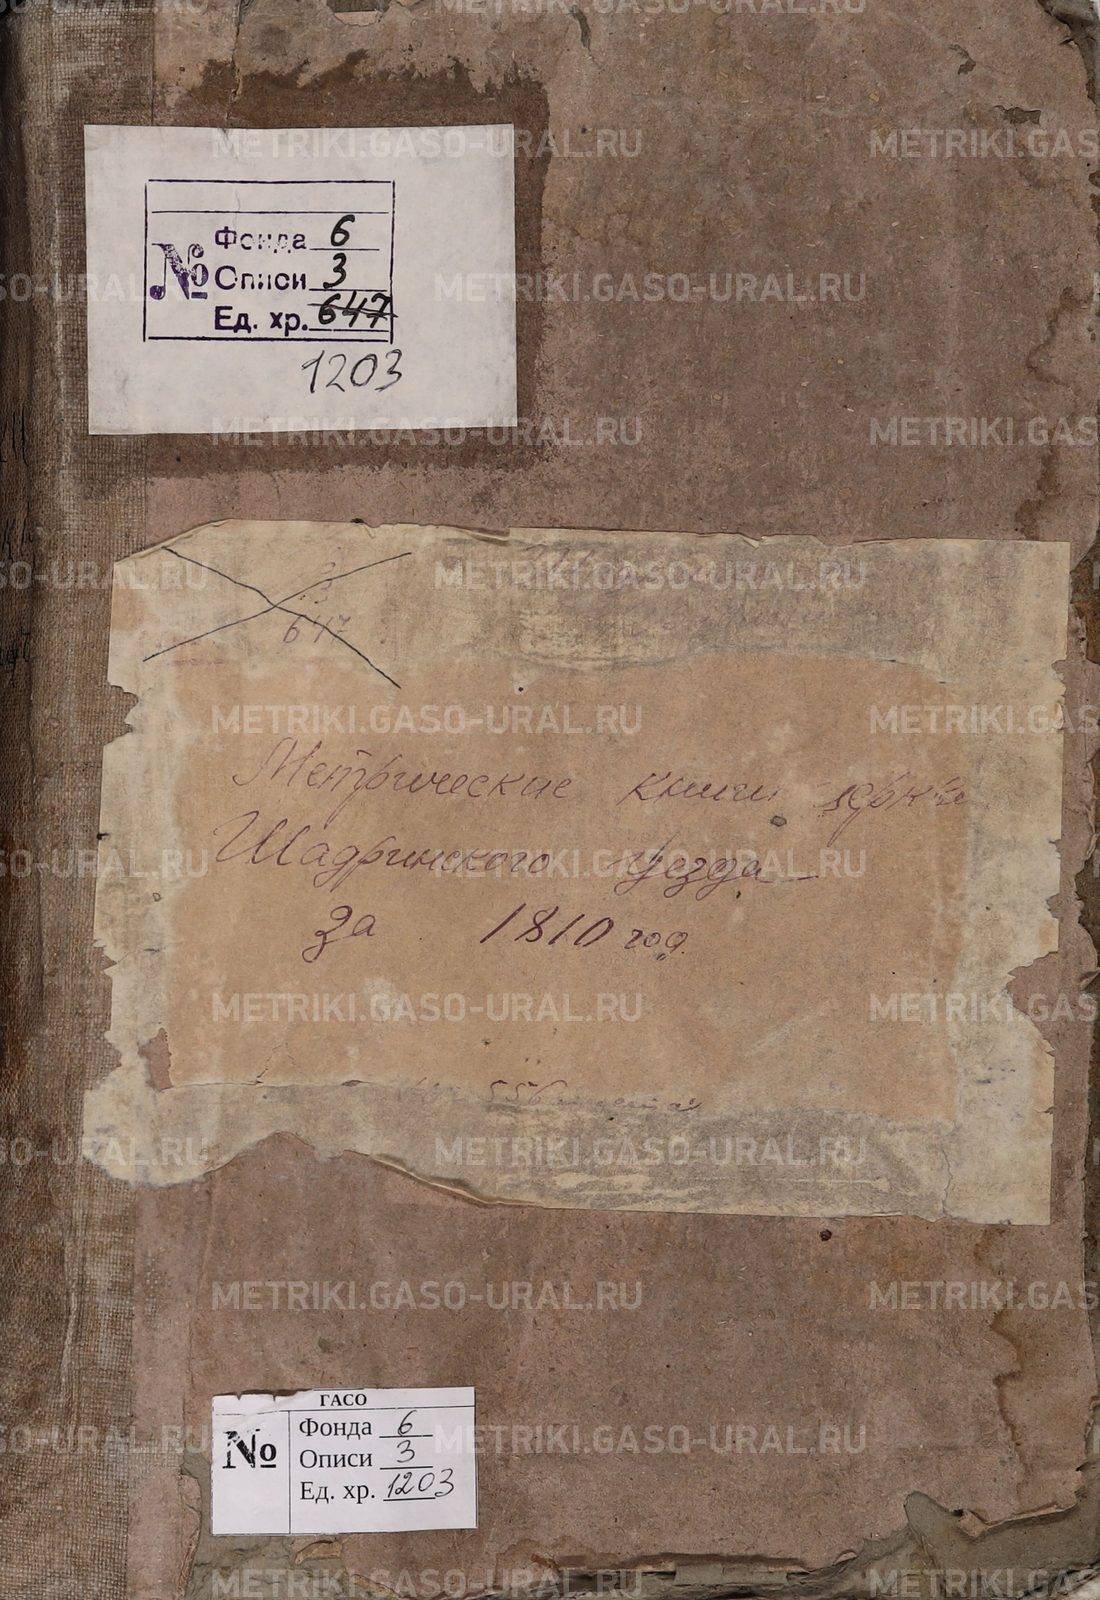 №
Фонда 6
Описи 3
Ед. хр. 647
1203
3
647
Метрические книги
Шадринского уезда
за 1810 год.
556
ГАСО
№
Фонда 6
Описи 3
Ед. хр. 1203
METRIKI.GASO-URAL.RU